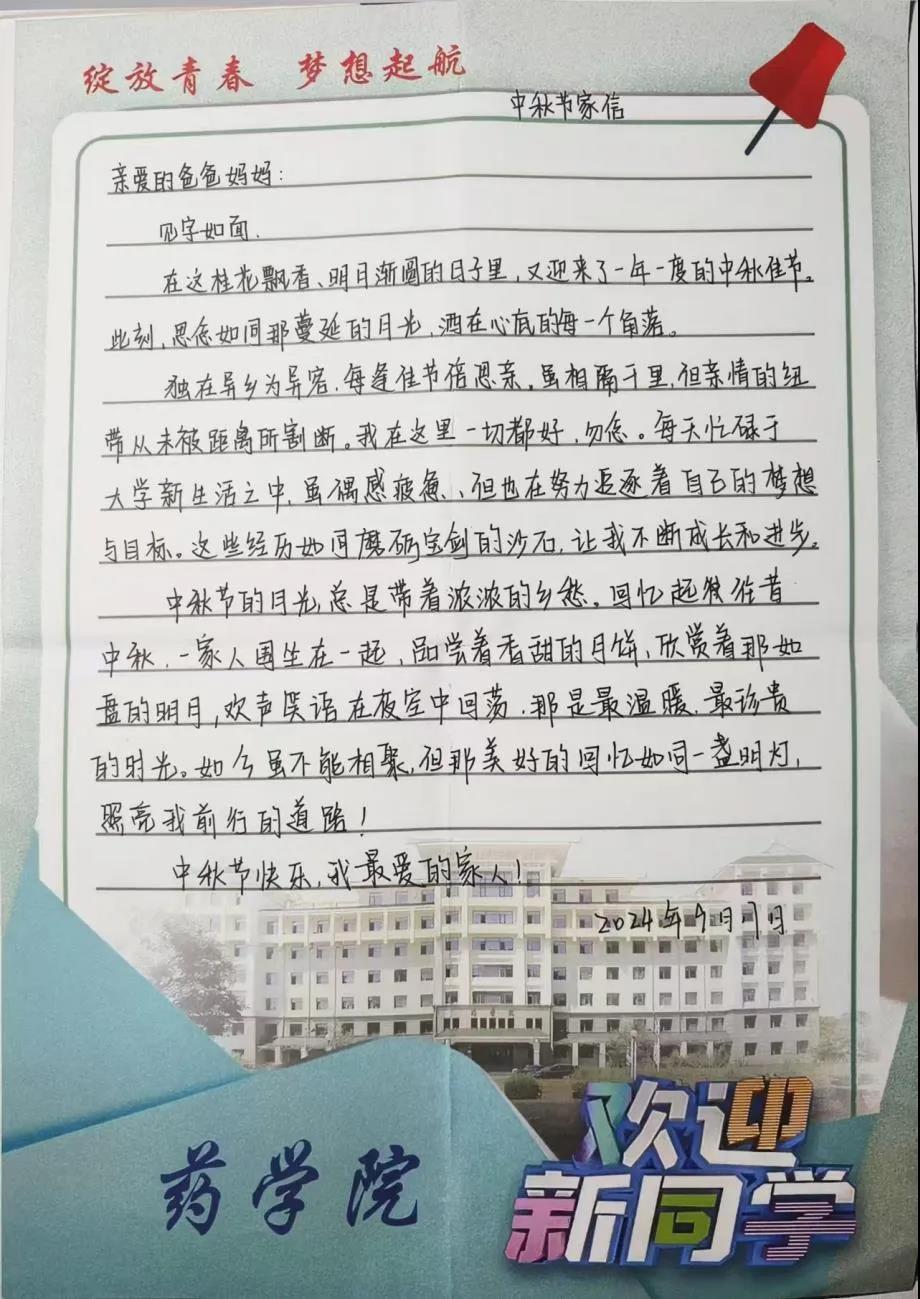 绽放青春 梦想起航
中秋节家信
亲爱的爸爸妈妈：
见字如面.
在这桂花飘香、明月渐圆的日子里，又迎来了一年一度的中秋佳节。
此刻，思念如同那蔓延的月光，洒在心底的每一个角落。
独在异乡为异客，每逢佳节倍思亲。虽相隔千里，但亲情的纽
带从未被距离所割断。我在这里一切都好，勿念。每天忙碌于
大学新生活之中，虽偶感疲惫、但也在努力追逐着自己的梦想
与目标。这些经历如同磨砺宝剑的沙石，让我不断成长和进步。
中秋节的月光，总是带着浓浓的乡愁。回忆起往昔
中秋，一家人围坐在一起，品尝着香甜的月饼，欣赏着那如
盘的明月，欢声笑语在夜空中回荡，那是最温暖、最珍贵
的时光。如今虽不能相聚，但那美好的回忆如同一盏明灯，
照亮我前行的道路！
中秋节快乐，我最爱的家人！
2024年9月 日
药学院
药学院
欢迎
新同学